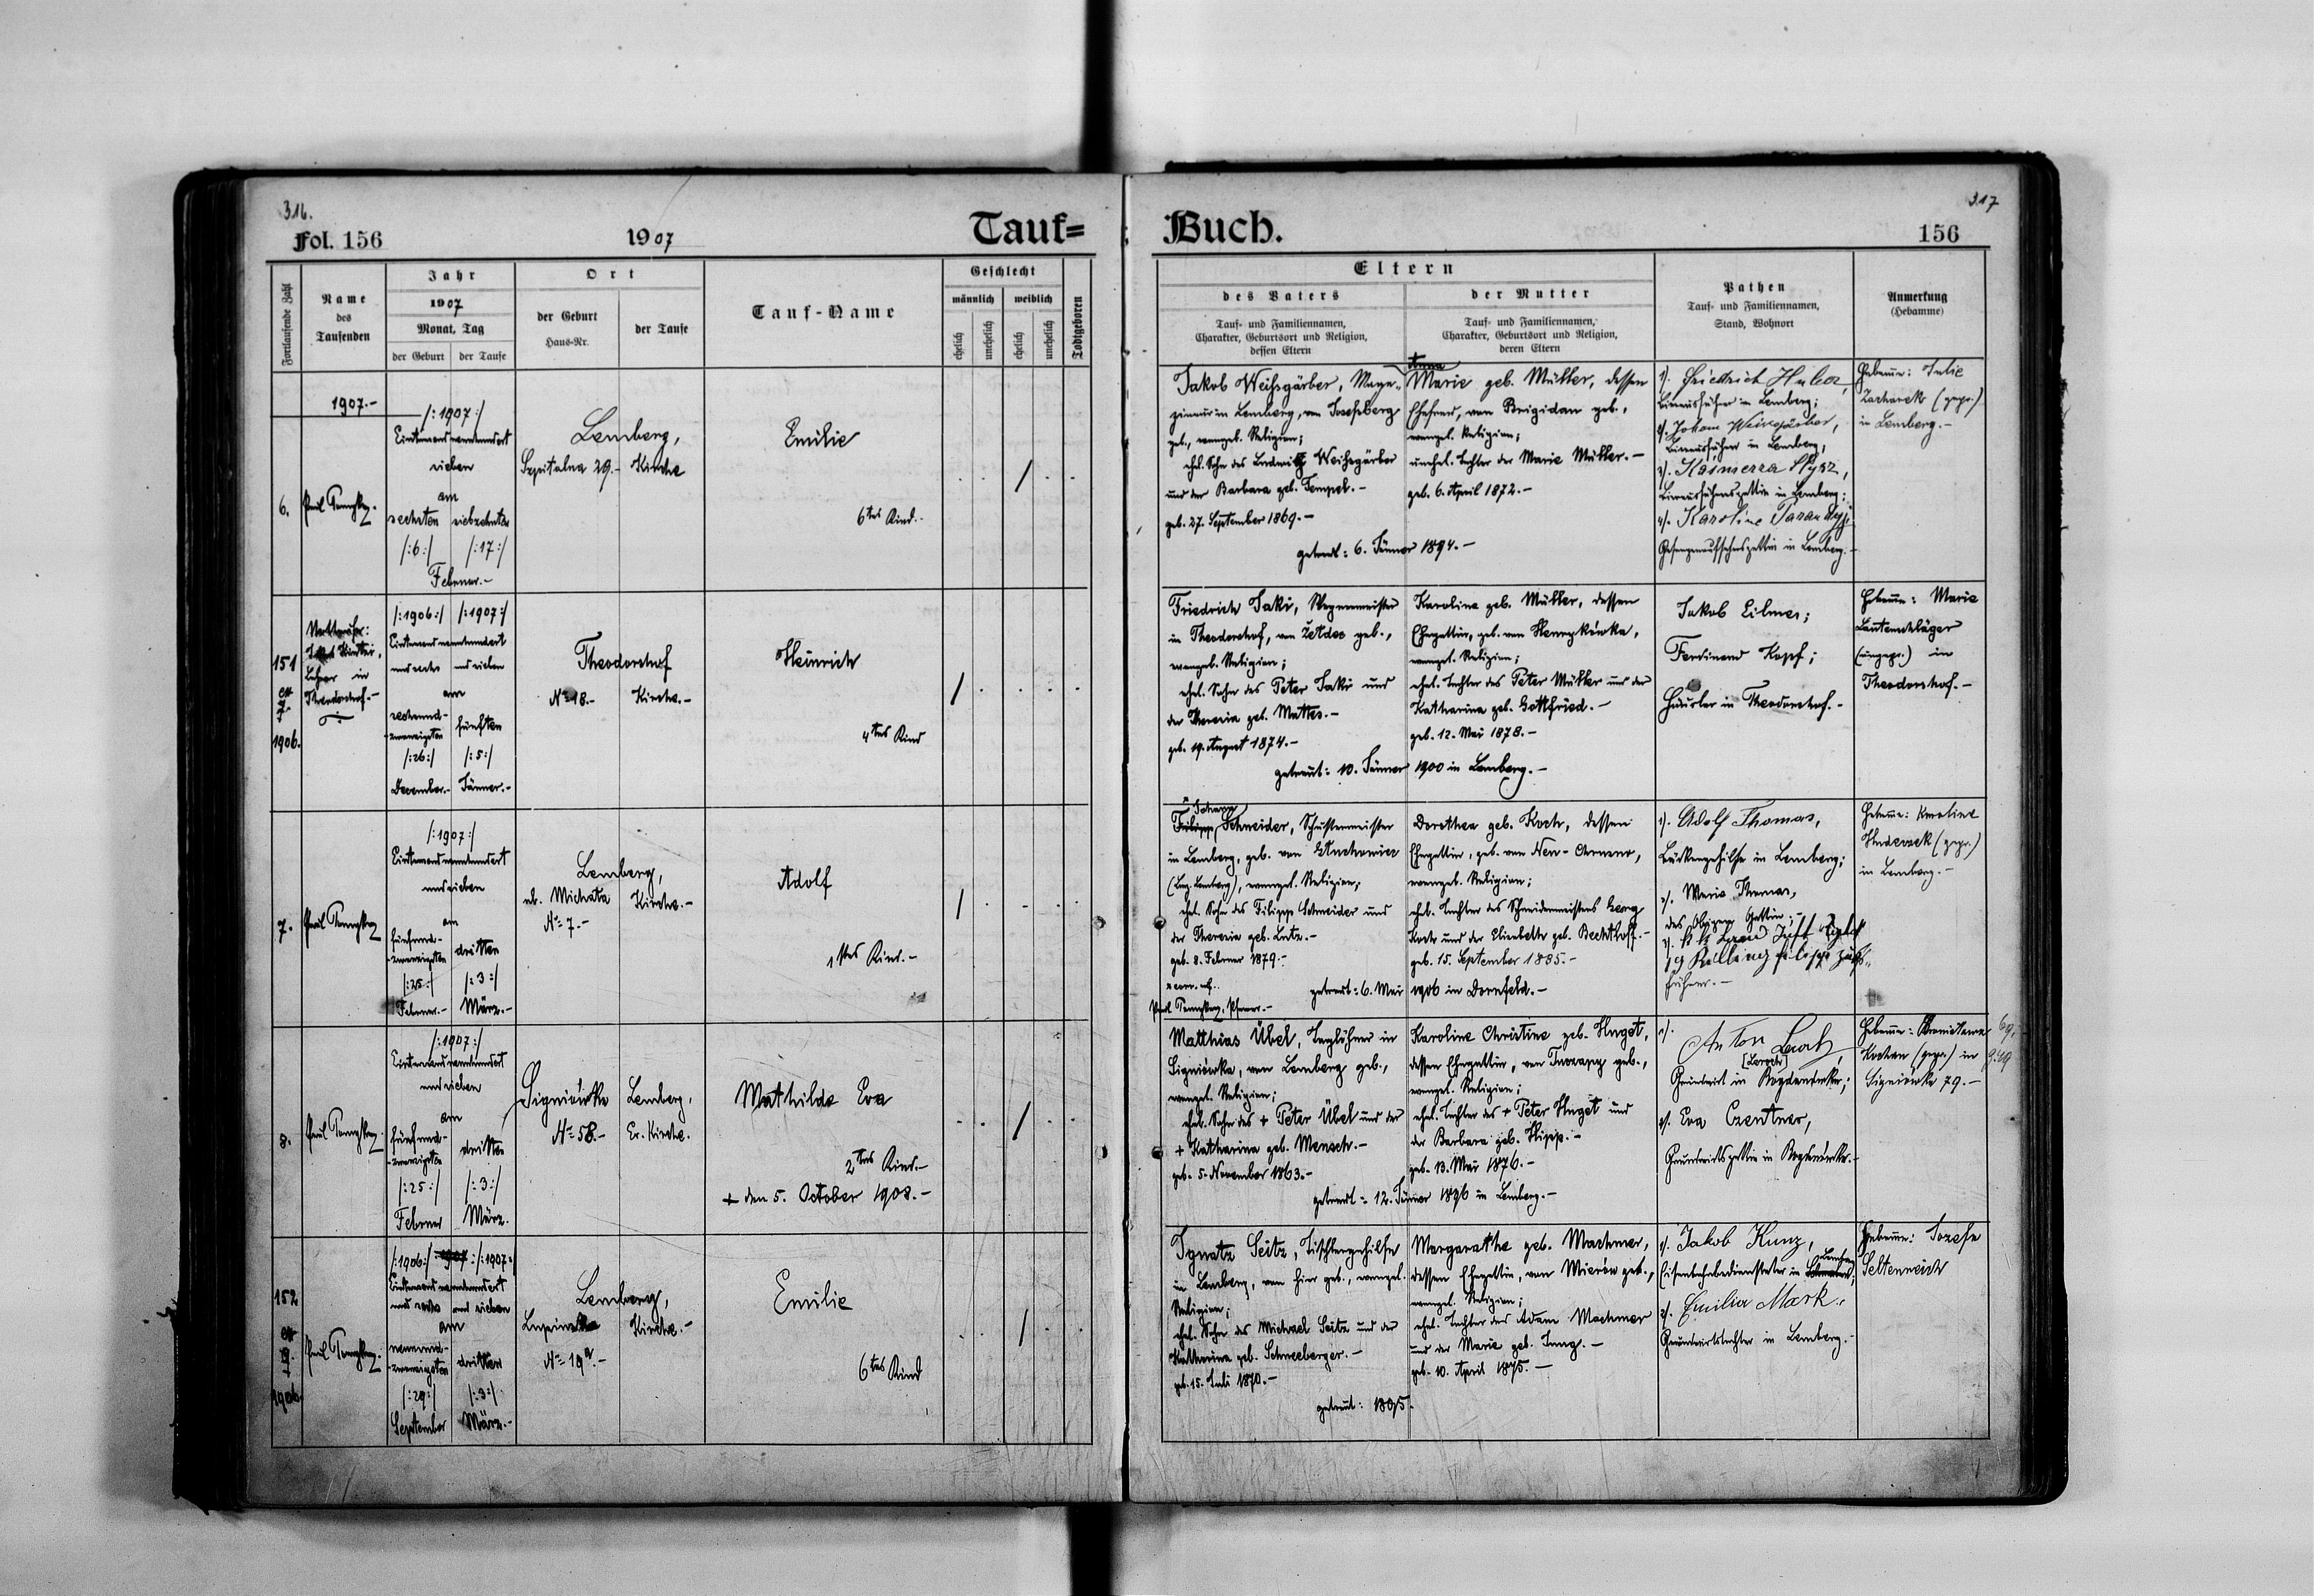 316.
Fol. 156
1907
Tauf=
Fortlaufende Zahl
Name
des
Taufenden
Jahr
1907
Monat, Tag
der Geburt
der Taufe
Ort
der Geburt
Haus-Nr.
der Taufe
Tauf-Name
Geschlecht
männlich
weiblich
ehelich
unehelich
ehelich
unehelich
Todtgeboren
1907.-
6.
/:1907:/
Eintausendneunhundert
sieben
am
sechsten
siebzehnten
/:6:/
/:17:/
Februar.-
Lemberg,
Szpitalna 29.-
Kirche
Emilie
6tes Kind.-
151
ex
1906.
Lehrer in
Theodorshof.-
/:1906:/
/:1907:/
Eintausendneunhundert
und sechs
und sieben
am
sechsund-
zwanzigsten
fünften
/:26:/
/:5:/
December.-
Jänner.-
Theodorshof
No 18.-
Kirche.-
Heinrich
4tes Kind
7.
/:1907:/
Eintausendneunhundert
und sieben
am
fünfund-
zwanzigsten
dritten
/:25:/
/:3:/
Februar.-
März.-
Lemberg,
ul. Michała
No 7.-
Kirche.-
Adolf
1tes Kind.-
8.
/:1907:/
Eintausendneunhundert
und sieben
am
fünfund-
zwanzigsten
dritten
/:25:/
/:3:/
Februar
März.
Signiówka
No 58.-
Lemberg,
Ev. Kirche.
Mathilde Eva
2tes Kind.-
+ den 5. October 1908.-
152
ex
1906
/:1906:/
/:1907:
Eintausendneunhundert
und sechs
und sieben
am
neunund-
zwanzigsten
dritten
/:29:/
/:3:/
September
März.-
Lemberg,
No 19a.-
Kirche.-
Emilie
6tes Kind
317
Buch.
156
Eltern
des Vaters
Tauf- und Familiennamen,
Charakter, Geburtsort und Religion,
dessen Eltern
der Mutter
Tauf- und Familiennamen,
Charakter, Geburtsort und Religion,
deren Eltern
Pathen
Tauf- und Familiennamen,
Stand, Wohnort
Anmerkung
(Hebamme)
Jakob Weihsgärber, Maga-
zineur in Lemberg, von Josefsberg
geb., evangel. Religion;
ehel. Sohn des Ludwig Weihsgärber
und der Barbara geb. Tempel.-
geb. 27. September 1869.-
Anna
Marie geb. Müller, dessen
Ehefrau, von Brigidau geb.,
evangel. Religion;
unehel. Tochter der Marie Müller.-
geb. 6. April 1872.-
getraut: 6. Jänner 1894.-
1). Friedrich Huber,
in Lemberg;
2). Johann Weihsgärber,
in Lemberg;
in Lemberg;
4). Karoline
in Lemberg.-
Hebamme: Julie
(gepr.)
in Lemberg.-
Friedrich Jaki, Wagnermeister
in Theodorshof, von geb.,
evangel. Religion;
ehel. Sohn des Peter Jaki und
der Theresia geb. Mattes.-
geb. 19. August 1874.-
Karoline geb. Müller, dessen
Ehegattin, geb. von
evangel. Religion;
ehel. Tochter des Peter Müller und der
Katharina geb. Gottfried.-
geb. 12. Mai 1878.-
getraut: 10. Jänner 1900 in Lemberg.-
Jakob Eilmes;
Ferdinand Kopf;
Häusler in Theodorshof.-
Hebamme: Marie
Lautenschläger
(ungepr.) in
Theodorshof.-
Johann
Filipp Schneider, Schustermeister
in Lemberg, geb. von
(Bez. Lemberg), evangel. Religion;
ehel. Sohn des Filipp Schneider und
der Theresia geb. Lutz.-
geb. 8. Februar 1879.-
Dorothea geb. Koch, dessen
Ehegattin, geb. von Neu-Chrusno,
evangel. Religion;
ehel. Tochter des Schneidermeisters Georg
Koch und der Elisabeth geb. Bechtloff.-
geb. 15. September 1885.-
getraut: 6. Mai 1906 in Dornfeld.-
1). Adolf Thomas,
Bäckergehilfe in Lemberg;
2). Marie Thomas,
des Obigen Gattin;-
Hebamme: Karoline
(gepr.)
in Lemberg.-
Matthias Übel, Taglöhner in
Signiówka, von Lemberg geb.,
evangel. Religion;
ehel. Sohn des + Peter Übel und der
+ Katharina geb. Mensch.-
geb. 5. November 1863.-
Karoline Christine geb. Huget,
dessen Ehegattin, von geb.,
evangel. Religion;
ehel. Tochter des + Peter Huget und
der Barbara geb. Hipp.-
geb. 13. Mai 1876.-
getraut: 12. Jänner 1896 in Lemberg.-
1).
Anton
Grundwirt in Bogdanówka;
2). Eva Czentner,
Grundwirtsgattin in Bogdanówka.-
Hebamme:
(gepr.) in
Signiówka 79.-
Ignatz Seitz, Tischlergehilfe
in Lemberg, von hier geb., evangel.
Religion;
ehel. Sohn des Michael Seitz und der
Katharina geb. Schneeberger.-
geb. 15. Juli 1870.-
Margarethe geb. Machmer,
dessen Ehegattin, von Mierów geb.,
evangel. Religion;
ehel. Tochter des Adam Machmer
und der Marie geb. Jung.-
geb. 10. April 1875.-
getraut: 1895.
1). Jakob Kunz,
Eisenbahnbediensteter in Lemberg;
2). Emilia Mark,
Grundwirtstochter in Lemberg.-
Hebamme: Josefa
Seltenreich